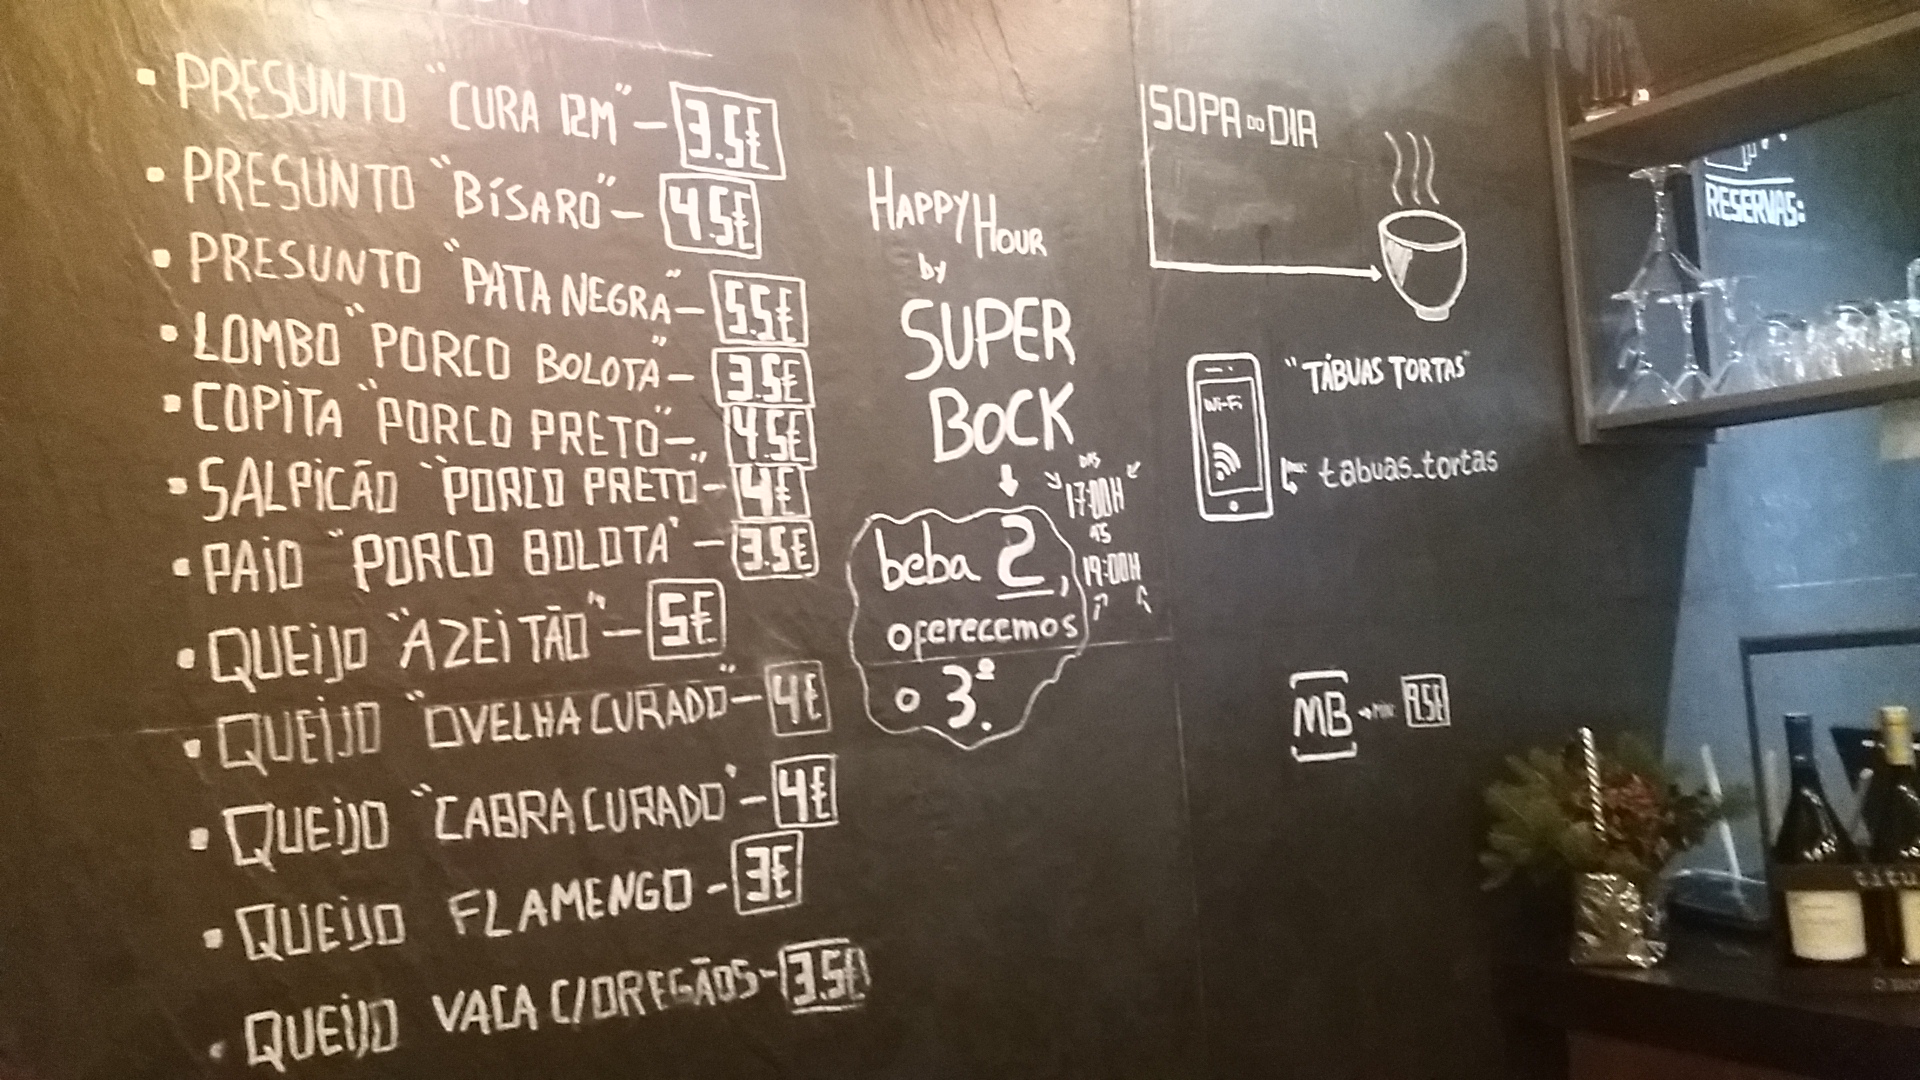 • PRESUNTO "CURA 12M" – 3.5€
• PRESUNTO "BÍSARO" – 4.5€
• PRESUNTO "PATA NEGRA" – 5.5€
• LOMBO "PORCO BOLOTA" – 3.5€
• COPITA "PORCO PRETO" – 4.5€
• SALPICÃO "PORCO PRETO" – 4€
• PAIO "PORCO BOLOTA" – 3.5€
• QUEIJO "AZEITÃO" – 5€
• QUEIJO "OVELHA CURADO" – 4€
• QUEIJO "CABRA CURADO" – 4€
• QUEIJO FLAMENGO – 3€
• QUEIJO VACA C/OREGÃOS – 3.5€
HAPPY HOUR
by
SUPER
BOCK
DAS
17:00H
ÀS
19:00H
beba 2,
oferecemos
o 3º.
SOPA DO DIA
Wi-Fi
"TÁBUAS TORTAS"
tabuas_tortas
MB MIN:
RESERVAS:
titu